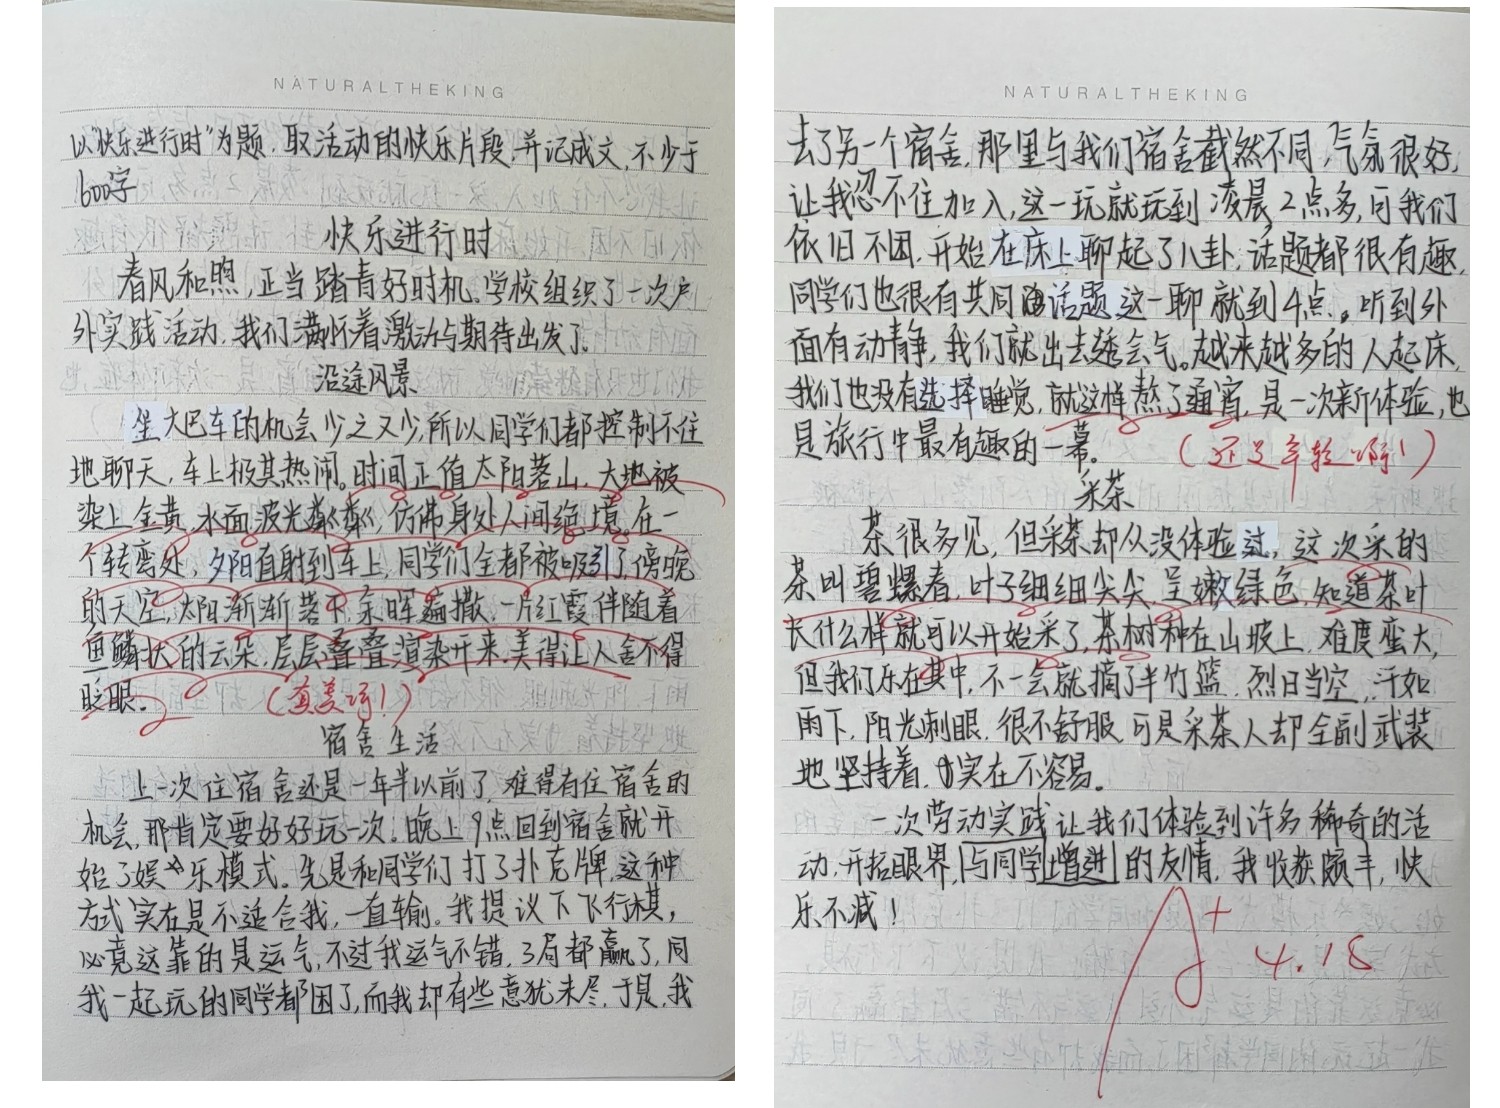 NATURALTHEKING
以"快乐进行时"为题,取活动的快乐片段,并记成文,不少于
1600字
快乐进行时
春风和煦,正当踏青好时机。学校组织了一次户
外实践活动,我们满怀着激动与期待出发了。
沿途风景
坐大巴车的机会少之又少,所以同学们都控制不住
地聊天,车上极其热闹。时间正值太阳落山,大地被
染上金黄,水面波光粼粼,仿佛身处人间绝境。在一
个转弯处,夕阳直射到车上,同学们全都被吸引了,傍晚
的天空,太阳渐渐落下,余晖遍撒,一片红霞伴随着
鱼鳞状的云朵,层层叠叠渲染开来,美得让人舍不得
眨眼。
(真美啊!)
宿舍生活
上一次住宿舍还是一年半以前了,难得有住宿舍的
机会,那肯定要好好玩一次。晚上9点回到宿舍就开
始了娱乐模式。先是和同学们打了扑克牌,这种
方式实在是不适合我,一直输。我提议下飞行棋,
必竟这靠的是运气,不过我运气不错,3局都赢了,同
我一起玩的同学都困了,而我却有些意犹未尽,于是,我
NATURALTHEKING
去了另一个宿舍,那里与我们宿舍截然不同,气氛很好,
让我忍不住加入,这一玩就玩到凌晨2点多,可我们
依旧不困,开始在床上聊起了八卦,话题都很有趣,
同学们也很有共同话题,这一聊就到4点。听到外
面有动静,我们就出去透会气。越来越多的人起床,
我们也没有选择睡觉,就这样熬了通宵,是一次新体验,也
是旅行中最有趣的一幕。
(还是年轻啊!)
采茶
茶很多见,但采茶却从没体验过,这次采的
茶叫碧螺春,叶子细细尖尖,呈嫩绿色,知道茶叶
长什么样就可以开始采了,茶树种在山坡上,难度蛮大,
但我们乐在其中,不一会就摘了半竹篮,烈日当空,汗如
雨下,阳光刺眼,很不舒服,可是采茶人却全副武装
地坚持着,实在不容易。
一次劳动实践让我们体验到许多稀奇的活
动,开拓眼界,与同学增进的友情,我收获颇丰,快
乐不减!
A+
4.18